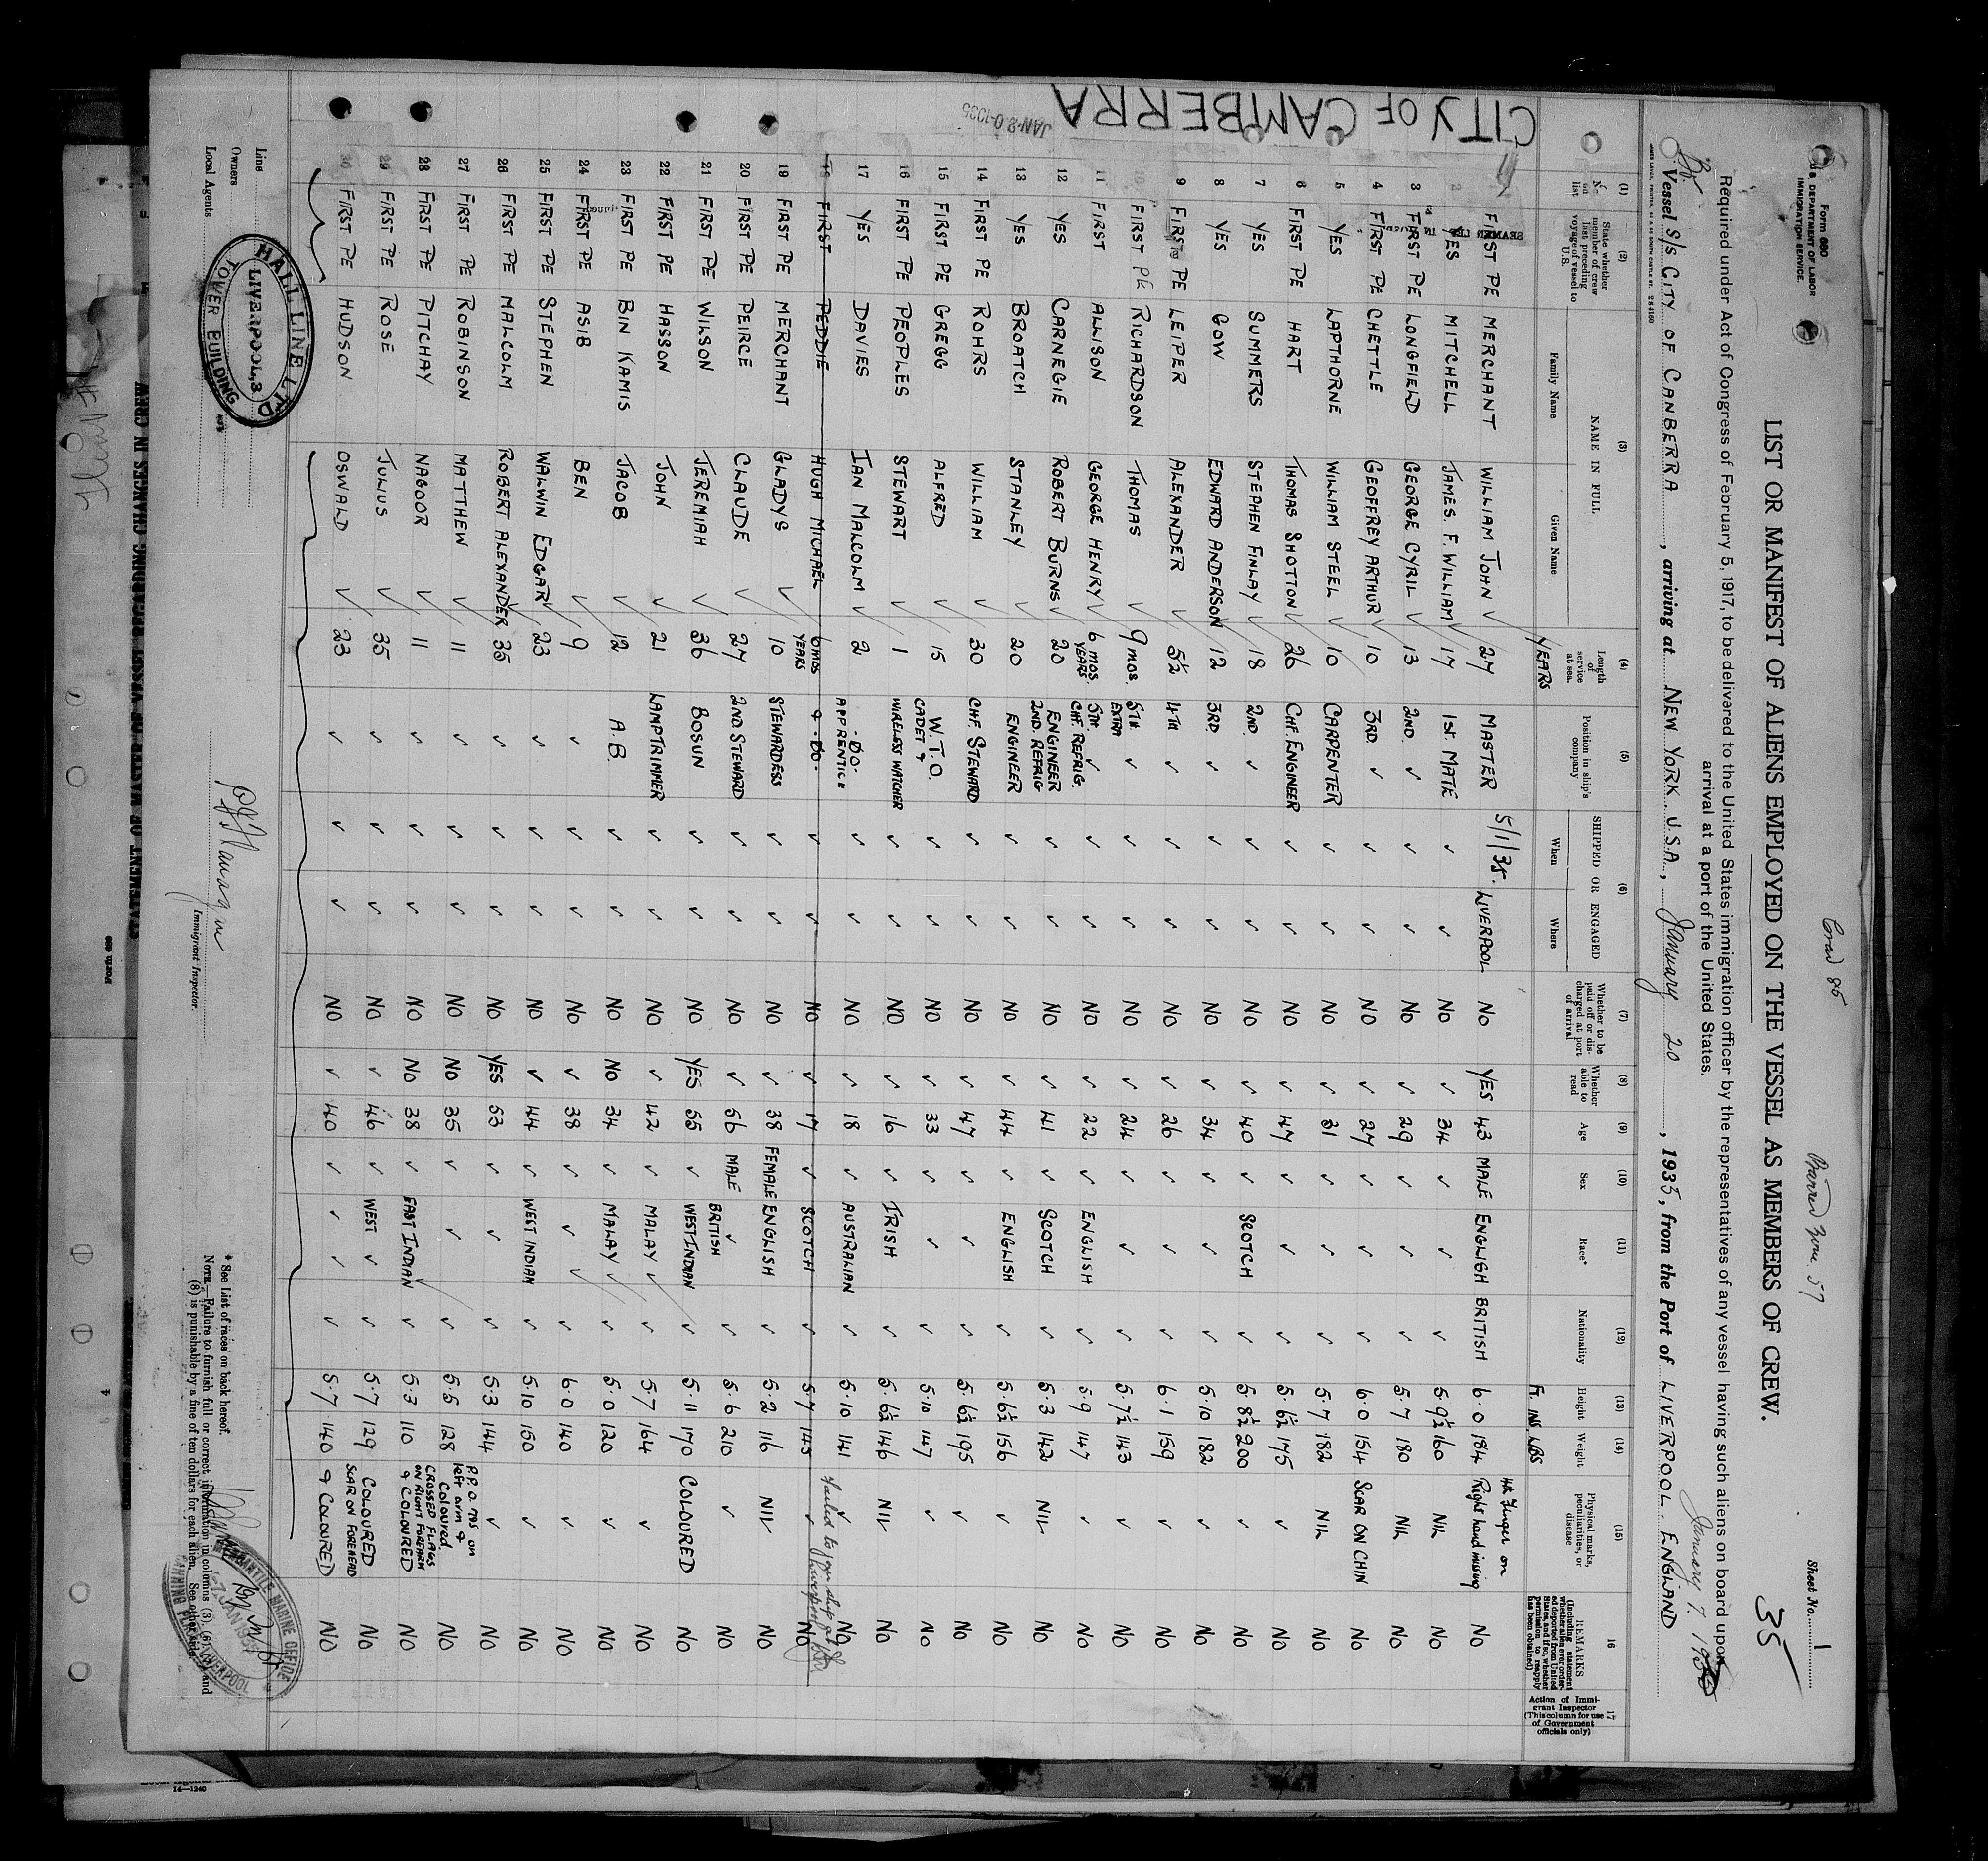 Form 680
U. S. DEPARTMENT OF LABOR
IMMIGRATION SERVICE
Sheet No. 1
35
LIST OR MANIFEST OF ALIENS EMPLOYED ON THE VESSEL AS MEMBERS OF CREW.
Required under Act of Congress of February 5, 1917, to be delivered to the United States immigration officer by the representatives of any vessel having such aliens on board upon
arrival at a port of the United States.
January 7. 1935
Vessel S/S CITY OF CANBERRA, arriving at NEW YORK U.S.A., January 20, 1935, from the Port of LIVERPOOL. ENGLAND
(1) (2) (3) (4) (5) (6) (7) (8) (9) (10) (11) (12) (13) (14) (15) 16 17
No. on list
State whether member of crew last preceding voyage of vessel to U.S.
NAME IN FULL
Family Name
Given Name
Length of service at sea.
YEARS
Position in ship's company
SHIPPED OR ENGAGED
When
Where
Whether to be paid off or discharged at port of arrival
Whether able to read
Age
Sex
Race*
Nationality
Height
FT. INS.
Weight
LBS
Physical marks, peculiarities, or disease
REMARKS (Including statement whether alien ever ordered deported from United States, and if so, whether permission to reapply has been obtained)
Action of Immigrant Inspector (This column for use of Government officials only)
CITY OF CAMBERRA
JAN 20 1935
FIRST PE MERCHANT WILLIAM JOHN ✓ 27 MASTER 5/1/35. LIVERPOOL NO YES 43 MALE ENGLISH BRITISH 6.0 184 Finger on Right hand missing NO
2 YES MITCHELL JAMES. F. WILLIAM ✓ 17 1ST. MATE ✓ ✓ NO ✓ 34 ✓ ✓ ✓ 5.9½ 160 NIL NO
3 FIRST PE LONGFIELD GEORGE CYRIL ✓ 13 2ND. ✓ ✓ ✓ NO ✓ 29 ✓ ✓ ✓ 5.7 180 NIL NO
4 FIRST PE CHETTLE GEOFFREY ARTHUR ✓ 10 3RD. ✓ ✓ ✓ NO ✓ 27 ✓ ✓ ✓ 6.0 154 SCAR ON CHIN NO
5 YES LAPTHORNE WILLIAM STEEL ✓ 10 CARPENTER ✓ ✓ NO ✓ 31 ✓ ✓ ✓ 5.7 182 NIL NO
6 FIRST PE HART THOMAS SHOTTON ✓ 26 CHF. ENGINEER ✓ ✓ NO ✓ 47 ✓ ✓ ✓ 5.6½ 175 ✓ NO
7 YES SUMMERS STEPHEN FINLAY ✓ 18 2ND. ✓ ✓ ✓ NO ✓ 40 ✓ SCOTCH ✓ 5.8½ 200 ✓ NO
8 YES GOW EDWARD ANDERSON ✓ 12 3RD. ✓ ✓ ✓ NO ✓ 34 ✓ ✓ ✓ 5.10 182 ✓ NO
9 FIRST PE LEIPER ALEXANDER ✓ 5½ 4TH ✓ ✓ ✓ NO ✓ 26 ✓ ✓ ✓ 6.1 159 ✓ NO
10 FIRST PE RICHARDSON THOMAS ✓ 9 MOS. EXTRA 5TH. ✓ ✓ ✓ NO ✓ 24 ✓ ✓ ✓ 5.7½ 143 ✓ NO
11 FIRST ALLISON GEORGE HENRY ✓ 6 MOS. 5TH. ✓ ✓ ✓ NO ✓ 22 ✓ ENGLISH ✓ 5.9 147 ✓ NO
12 YES CARNEGIE ROBERT BURNS ✓ YEARS 20 CHF. REFRIG. ENGINEER ✓ ✓ NO ✓ 41 ✓ SCOTCH ✓ 5.3 142 NIL NO
13 YES BROATCH STANLEY ✓ 20 2ND. REFRIG ENGINEER ✓ ✓ NO ✓ 44 ✓ ENGLISH ✓ 5.6½ 156 ✓ NO
14 FIRST PE ROHRS WILLIAM ✓ 30 CHF. STEWARD ✓ ✓ NO ✓ 47 ✓ ✓ ✓ 5.6½ 195 ✓ NO
15 FIRST PE GREGG ALFRED ✓ 15 W.T.O. ✓ ✓ NO ✓ 33 ✓ ✓ ✓ 5.10 147 ✓ NO
16 FIRST PE PEOPLES STEWART ✓ 1 CADET & WIRELESS WATCHER ✓ ✓ NO ✓ 16 ✓ IRISH ✓ 5.6½ 146 NIL NO
17 YES DAVIES IAN MALCOLM ✓ 2 -DO- APPRENTICE ✓ ✓ NO ✓ 18 ✓ AUSTRALIAN ✓ 5.10 141 ✓ NO
18 FIRST PEDDIE HUGH MICHAEL 6 MOS & -DO- ✓ ✓ NO ✓ 17 ✓ SCOTCH ✓ 5.7 145 ✓ NO
Failed to join ship at Liverpool
19 FIRST PE MERCHANT GLADYS ✓ YEARS 10 STEWARDESS ✓ ✓ NO ✓ 38 FEMALE ENGLISH ✓ 5.2 116 NIL NO
20 FIRST PE PEIRCE CLAUDE ✓ 27 2ND. STEWARD ✓ ✓ NO ✓ 56 MALE ✓ ✓ 5.6 210 ✓ NO
21 FIRST PE WILSON JEREMIAH ✓ 36 BOSUN ✓ ✓ NO YES 55 ✓ BRITISH WEST INDIAN ✓ 5.11 170 COLOURED NO
22 FIRST PE HASSON JOHN ✓ 21 LAMPTRIMMER ✓ ✓ NO ✓ 42 ✓ MALAY ✓ ✓ 5.7 164 ✓ NO
23 FIRST PE BIN KAMIS JACOB ✓ 12 A.B. ✓ ✓ NO NO 34 ✓ MALAY ✓ ✓ 5.0 120 ✓ NO
24 FIRST PE ASIB BEN ✓ 9 ✓ ✓ ✓ NO ✓ 38 ✓ ✓ ✓ 6.0 140 ✓ NO
25 FIRST PE STEPHEN WALWIN EDGAR ✓ 23 ✓ ✓ ✓ NO ✓ 44 ✓ WEST INDIAN ✓ 5.10 150 ✓ NO
26 FIRST PE MALCOLM ROBERT ALEXANDER 35 ✓ ✓ ✓ NO YES 53 ✓ ✓ ✓ 5.3 144 ✓ NO
27 FIRST PE ROBINSON MATTHEW ✓ 11 ✓ ✓ ✓ NO NO 35 ✓ ✓ ✓ 5.5 128 left arm & Coloured NO
28 FIRST PE PITCHAY NAGOOR ✓ 11 ✓ ✓ ✓ NO NO 38 ✓ EAST INDIAN ✓ 5.3 110 CROSSED FLAGS ON RIGHT FOREARM & COLOURED NO
29 FIRST PE ROSE JULIUS ✓ 35 ✓ ✓ ✓ NO ✓ 46 ✓ WEST ✓ ✓ 5.7 129 COLOURED NO
30 FIRST PE HUDSON OSWALD ✓ 23 ✓ ✓ ✓ NO ✓ 40 ✓ ✓ ✓ ✓ 5.7 140 SCAR ON FOREHEAD & COLOURED NO
Line
Owners
Local Agents
HALL LINE LTD
LIVERPOOL, 3
TOWER BUILDING
Immigrant Inspector.
* See List of races on back hereof.
NOTE.—Failure to furnish full or correct information in columns (3), (6), (7) and
(8) is punishable by a fine of ten dollars for each alien. See other side.
MERCANTILE MARINE OFFICE
LIVERPOOL
STATEMENT OF MASTER OF VESSEL REGARDING CHANGES IN CREW
Form 689
14—1240